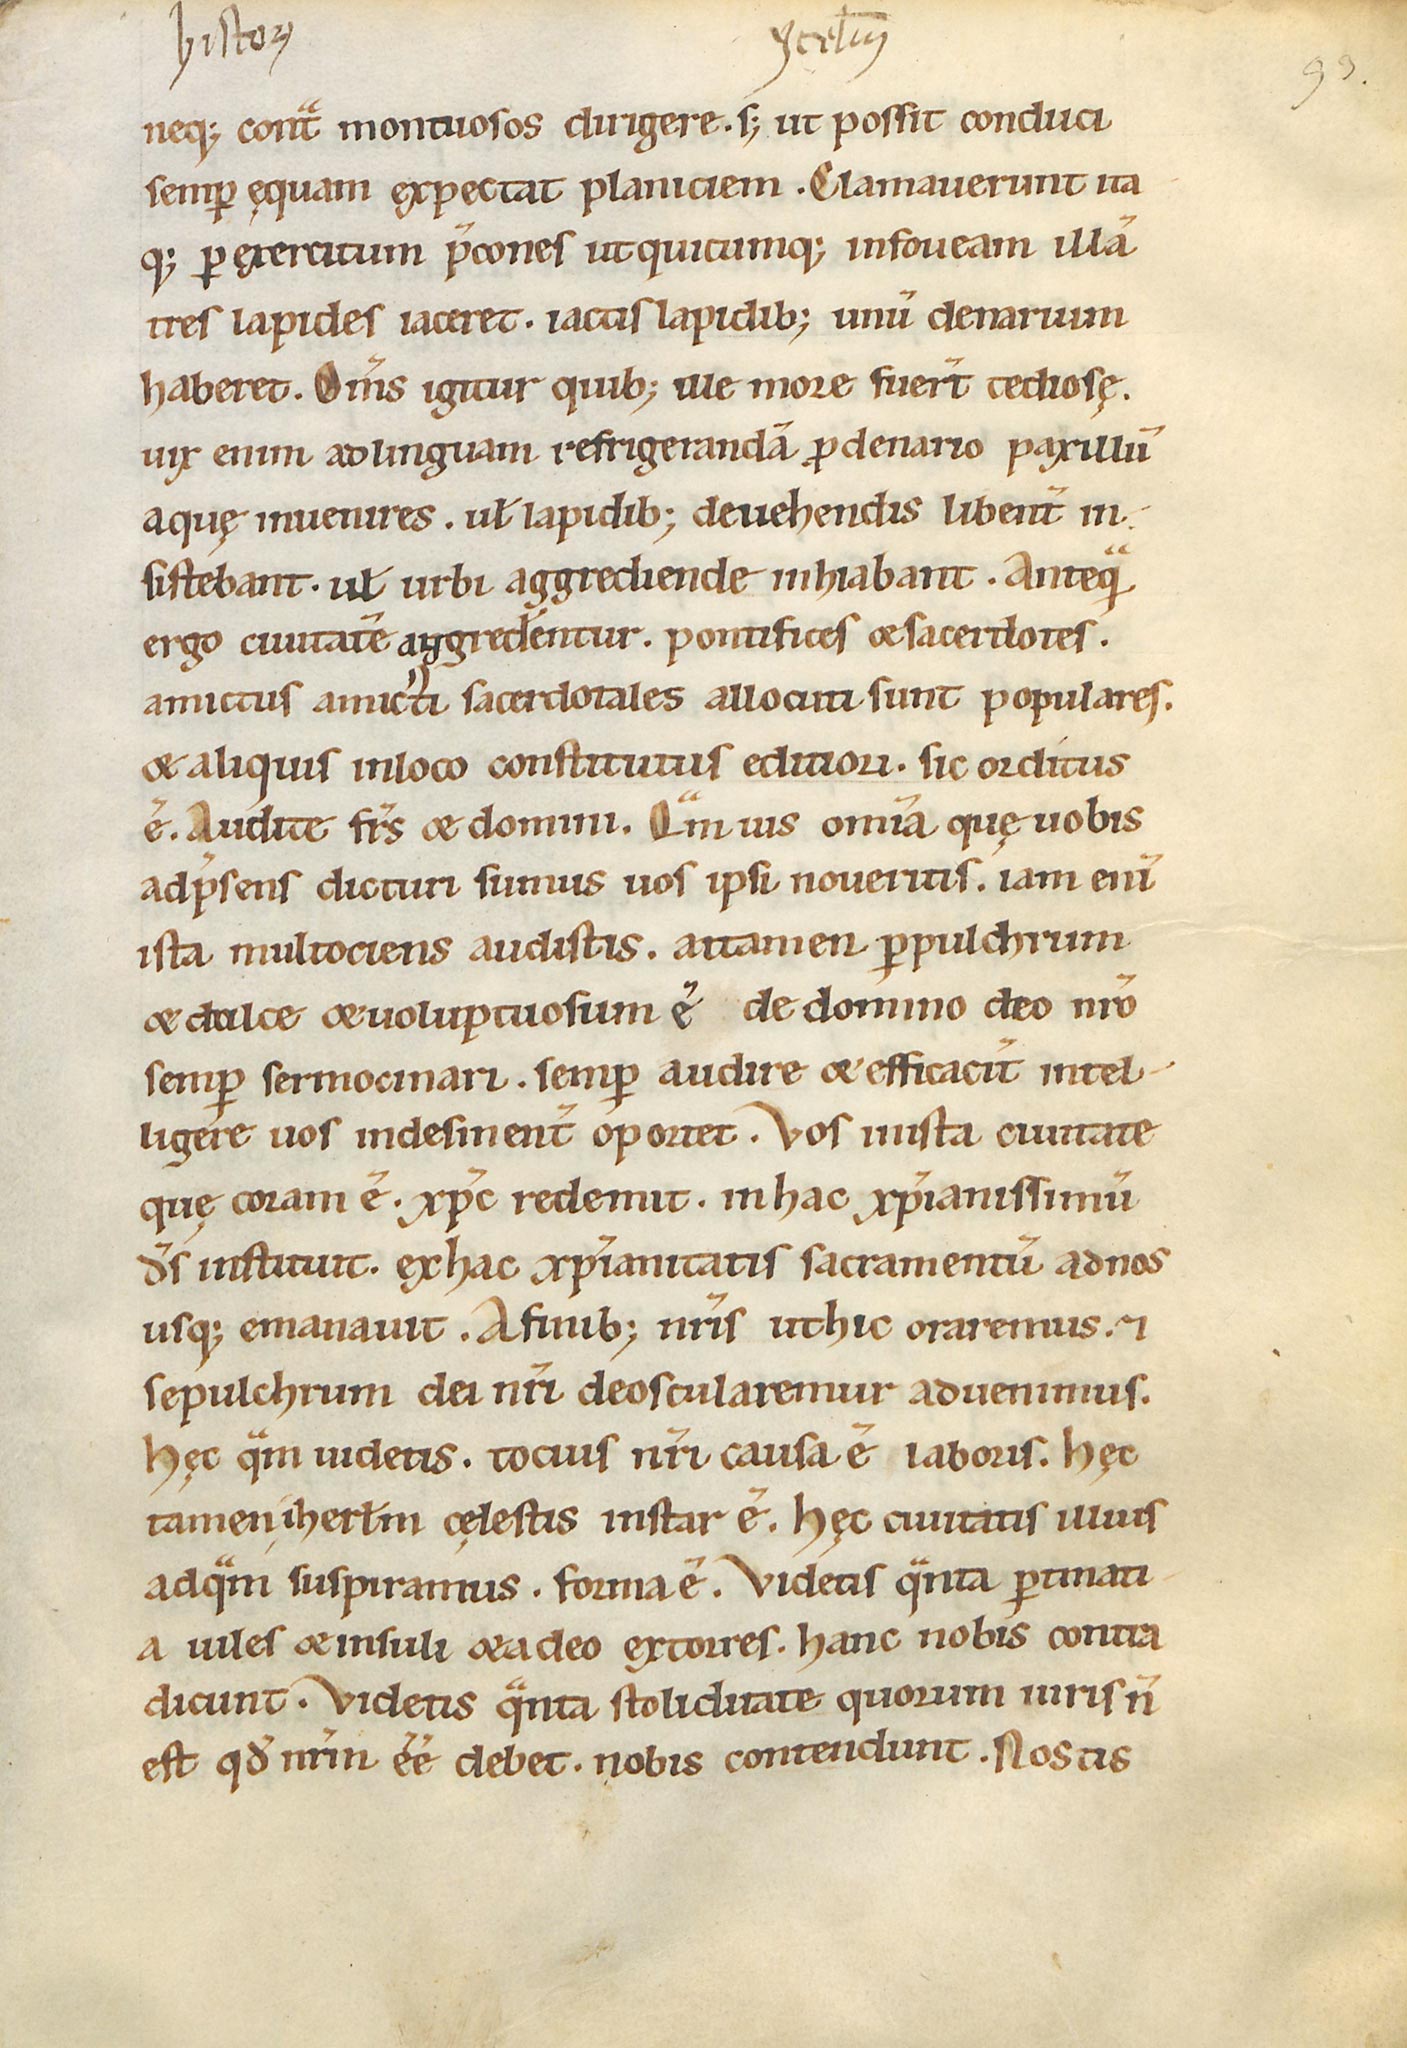 histor₎ ycrl̄m
93.
neq; cont̄ montuosos dirigere. s; ut possit conduci
semꝑ ęquam expectat planiciem. Clamauerunt ita
q; ꝑ exercitum p̄cones ut quicumq; infoueam illā
tres lapides iaceret. iactis lapidib; unū denarium
haberet. Om̄s igitur quib; ille more fuer̄t tediosę.
uix enim adlinguam refrigerandā ꝓdenario paxillū
aquę inuenires. ul̵ lapidib; deuehendis libent̄ in-
sistebant. ul̵ urbi aggrediende inhiabant. Anteqᷓ
ergo ciuitatē aggrederentur. pontifices &sacerdotes.
amictus amicti sacerdotales allocuti sunt populares.
& aliquis inloco constitutus editiori. sic orditus
ē. Audite fr̄s & domini. Qᷓm uis om̄ia quę uobis
adp̄sens dicturi sumus uos ipsi noueritis. iam enī
ista multociens audistis. attamen ꝑpulchrum
& dulce &uoluptuosum ē de domino deo nr̄o
semꝑ sermocinari. semꝑ audire &efficacit̄ intel-
ligere uos indesinent̄ oportet. Vos inista ciuitate
quę coram ē. xp̄c redemit. inhac xp̄ianissimū
d̄s instituit. exhac xp̄ianitatis sacramentū adnos
usq; emanauit. Afinib; nr̄is uthic oraremus. ⁊
sepulchrum dei nr̄i deoscularemur aduenimus.
hęc qᷓm uidetis. tocius nr̄i causa ē laboris. hęc
tamen iherl̄m cęlestis instar ē. hęc ciuitatis illius
adqᷓm suspiramus. forma ē. Videtis qᷓnta ꝑtinati-
a uiles &insuli &adeo extorres. hanc nobis contra
dicunt. Videtis qᷓnta stoliditate quorum iuris n̄
est qd̄ nr̄m ēē debet. nobis contendunt. Nostis